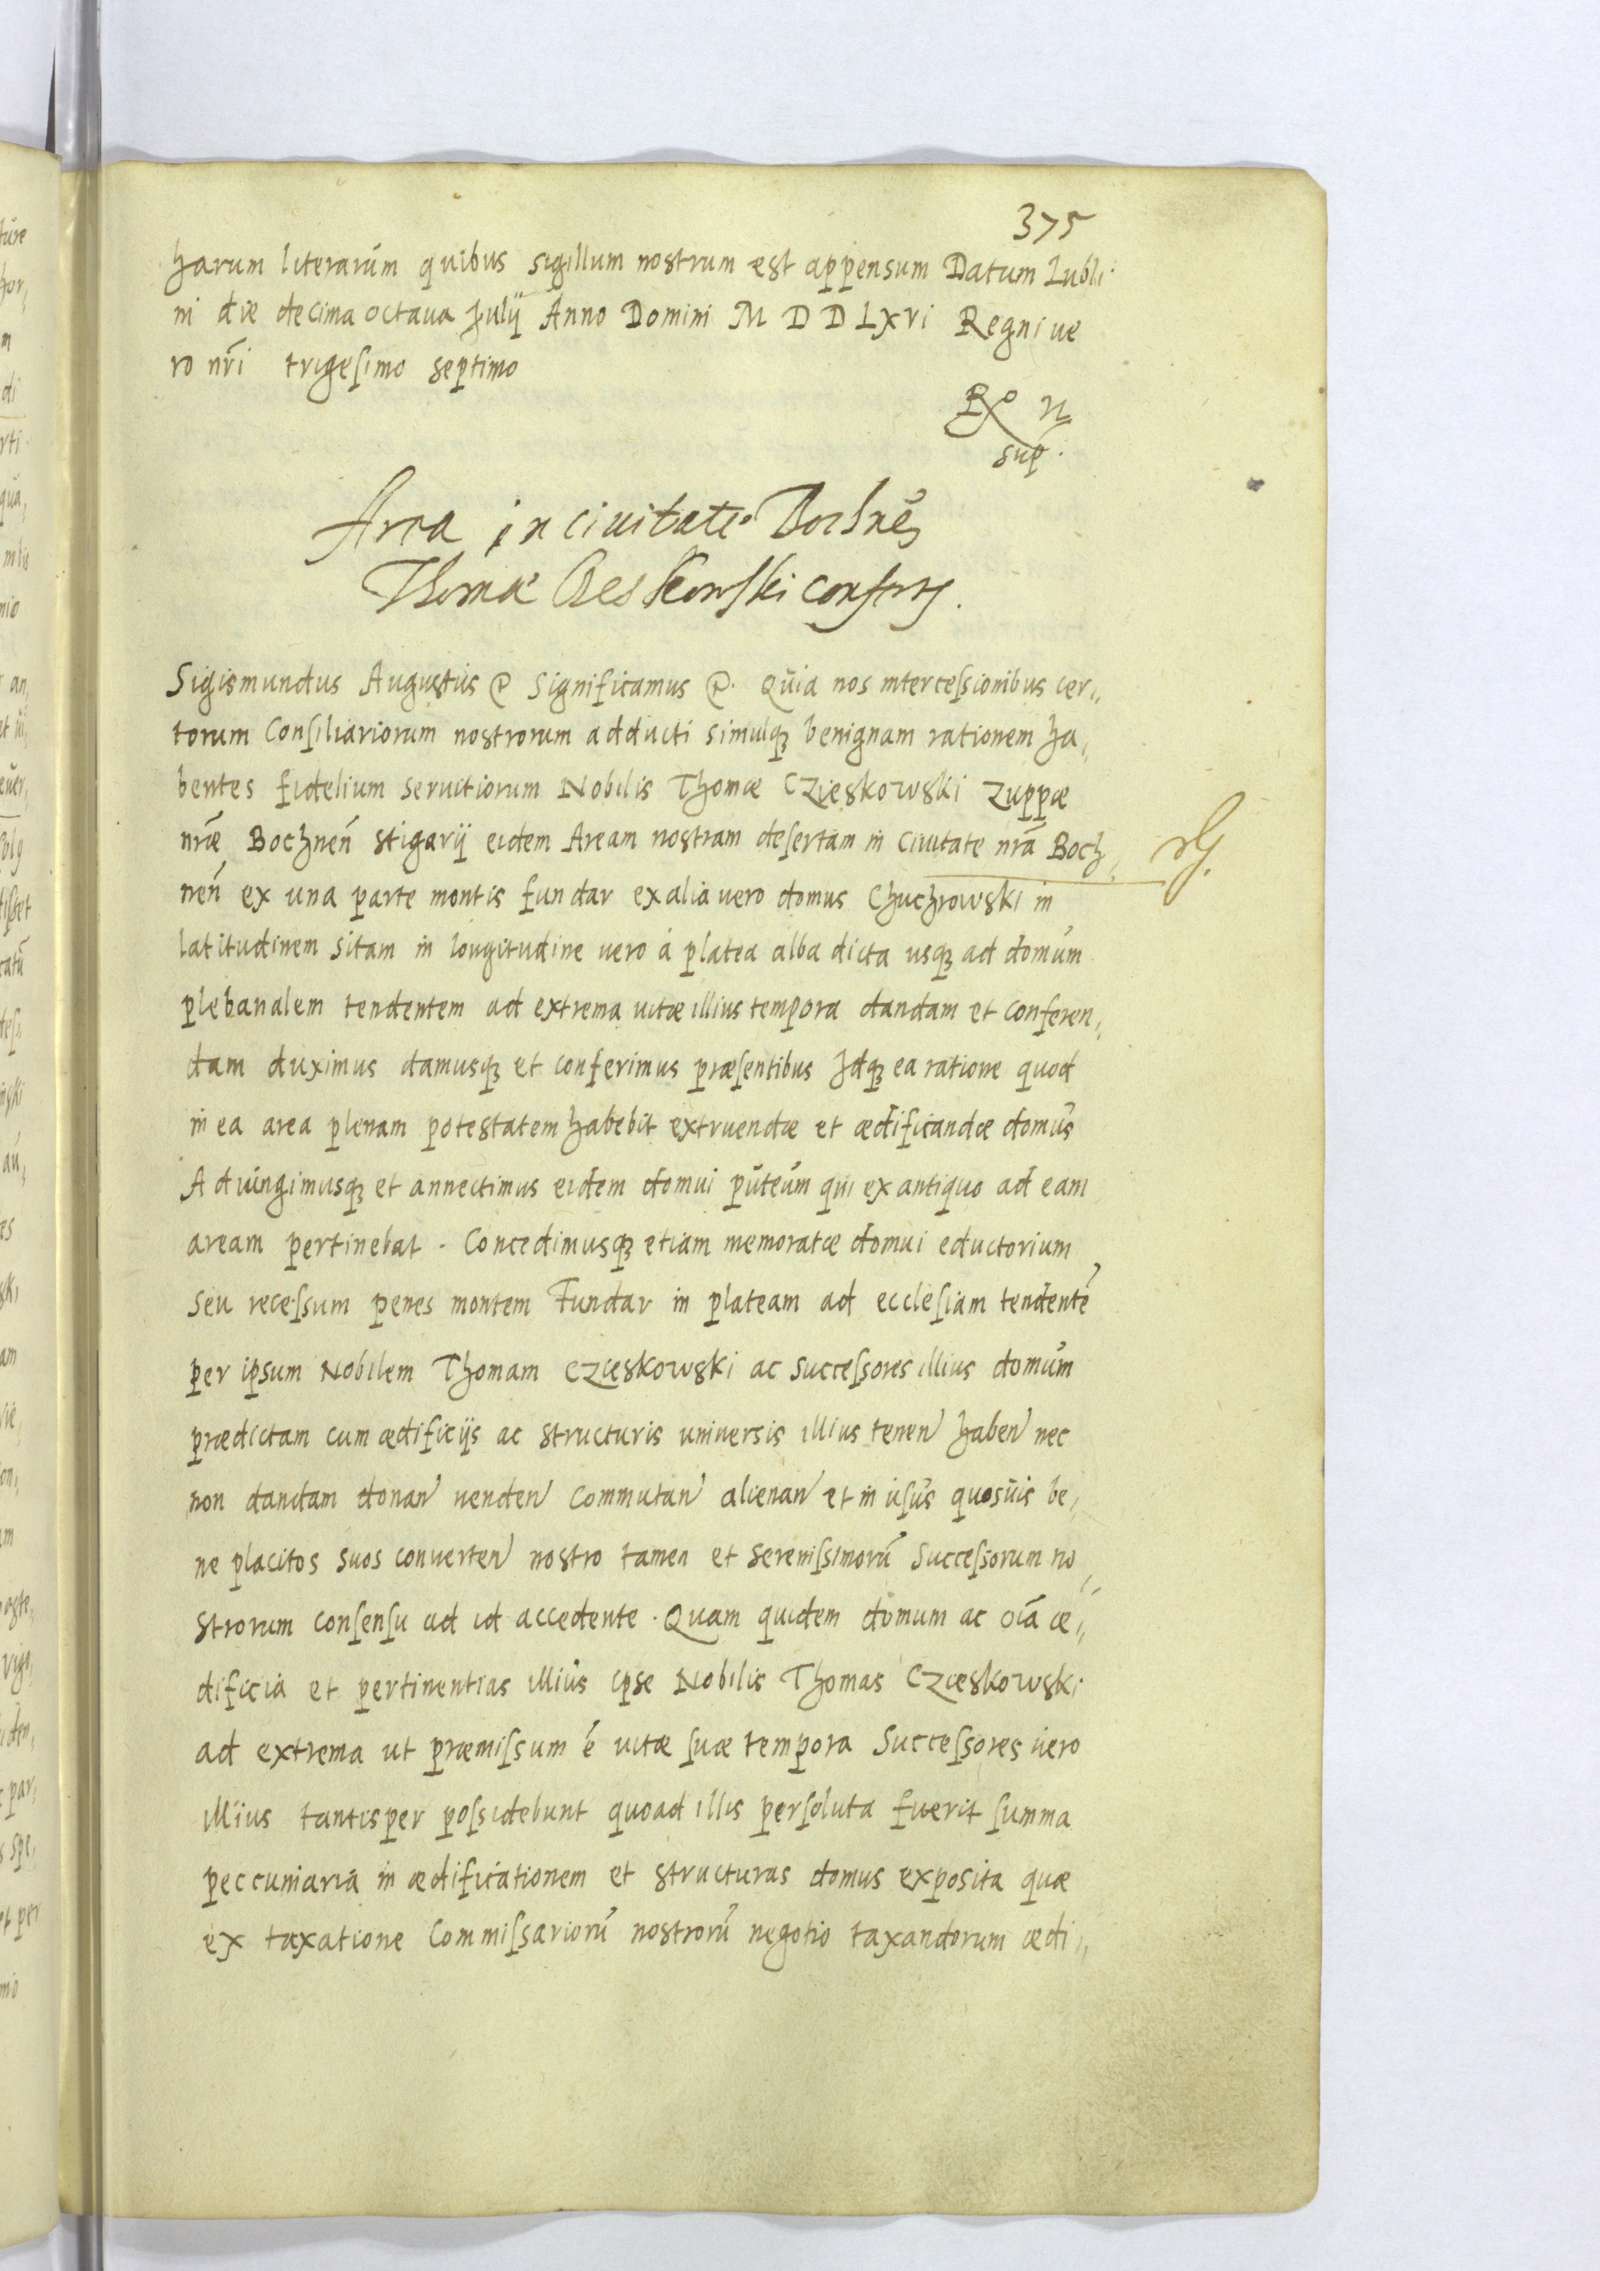 375
harum literarum quibus sigillum nostrum æst appensum Datum Lubli
ni die decima octaua Julij Anno Domini M D D LXVI Regni ue
ro nr̃i trigeſimo septimo
sup.
Area in ciuitate Bochnẽ
Thomæ confertur.
Sigismundus Augustus & Significamus & Quia nos interceſsionibus cer„
torum Conſiliariorum nostrorum adducti simulqꝫ benignam rationem ha„
bentes fidelium seruitiorum Nobilis Thomæ Czieskowski Zuppæ
nr̃æ Bochnen̄ stigarij eidem Aream nostram deſertam in Ciuitate nr̃a Boch„
nen̄ ex una parte montis fundar ex alia uero domus Chuchrowski in
latitudinem sitam in longitudine uero á platea alba dicta usqꝫ ad domum
plebanalem tendentem ad extrema uitæ illius tempora dandam et conferen„
dam duximus damusqꝫ et conferimus præſentibus Jdqꝫ ea ratione quod
in ea area plenam potestatem habebit extruendæ et ædificandæ domus
Aduingimusqꝫ et annectimus eidem domui puteum qui ex antiquo ad eam
aream pertinebat . Concedimusqꝫ etiam memoratæ domui eductorium
seu receſsum penes montem Fundar in plateam ad eccleſiam tendentẽ
per ipsum Nobilem Thomam Czieskowski ac succeſsores illius domum
prædictam cum ædificijs ac structuris uniuersis illius tenen̄ haben̄ nec
non dandam donan̄ uenden̄ commutan̄ alienan̄ et in uſus quosuis be„
ne placitos suos conuerten̄ nostro tamen et sereniſsimorũ Succeſsorum no„
strorum conſenſu ad id accedente . Quam quidem domum ac oĩa æ„
dificia et pertinentias illius ipse Nobilis Thomas Czieskowski
ad extrema ut præmiſsum ẽ uitæ ſuæ tempora Succeſsores uero
illius tantisper poſsidebunt quoad illis perſoluta fuerit ſumma
peccuniaria in ædificationem et structuras domus exposita quæ
ex taxatione Commiſsariorũ nostrorũ negotio taxandorum ædi„